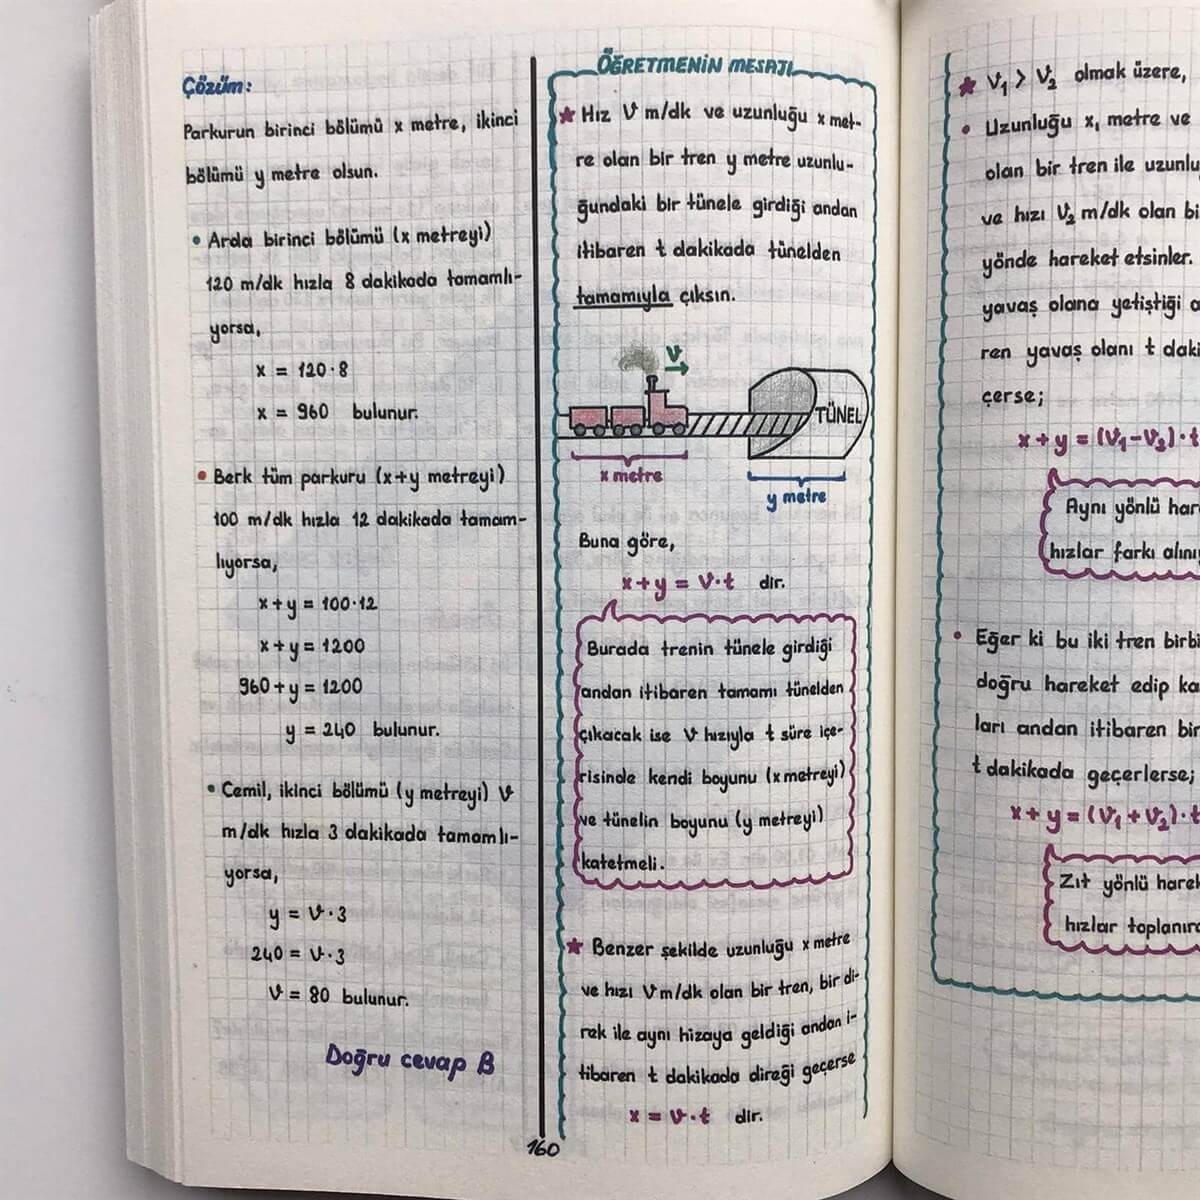 Çözüm:
Parkurun birinci bölümü x metre, ikinci
bölümü y metre olsun.
• Arda birinci bölümü (x metreyi)
120 m/dk hızla 8 dakikada tamamlı-
yorsa,
x = 120·8
x = 960 bulunur.
• Berk tüm parkuru (x+y metreyi)
100 m/dk hızla 12 dakikada tamam-
lıyorsa,
x+y = 100·12
x+y = 1200
960+y = 1200
y = 240 bulunur.
• Cemil, ikinci bölümü (y metreyi) v
m/dk hızla 3 dakikada tamamlı-
yorsa,
y = v·3
240 = v·3
v = 80 bulunur.
Doğru cevap B
ÖĞRETMENİN MESAJI
★ Hız v m/dk ve uzunluğu x met-
re olan bir tren y metre uzunlu-
ğundaki bir tünele girdiği andan
itibaren t dakikada tünelden
tamamıyla çıksın.
v
TÜNEL
x metre
y metre
Buna göre,
x+y = v·t dir.
Burada trenin tünele girdiği
andan itibaren tamamı tünelden
çıkacak ise v hızıyla t süre içe-
risinde kendi boyunu (x metreyi)
ve tünelin boyunu (y metreyi)
katetmeli.
★ Benzer şekilde uzunluğu x metre
ve hızı v m/dk olan bir tren, bir di-
rek ile aynı hizaya geldiği andan i-
tibaren t dakikada direği geçerse
x = v·t dir.
160
★ v₁ > v₂ olmak üzere,
• Uzunluğu x, metre ve
olan bir tren ile uzunlu
ve hızı v₂ m/dk olan bi
yönde hareket etsinler.
yavaş olana yetiştiği a
ren yavaş olanı t daki
çerse;
x+y = (v₁-v₂)·t
Aynı yönlü hare
hızlar farkı alını
• Eğer ki bu iki tren birbi
doğru hareket edip ka
ları andan itibaren bir
t dakikada geçerlerse;
x+y = (v₁+v₂)·t
Zıt yönlü harek
hızlar toplanır